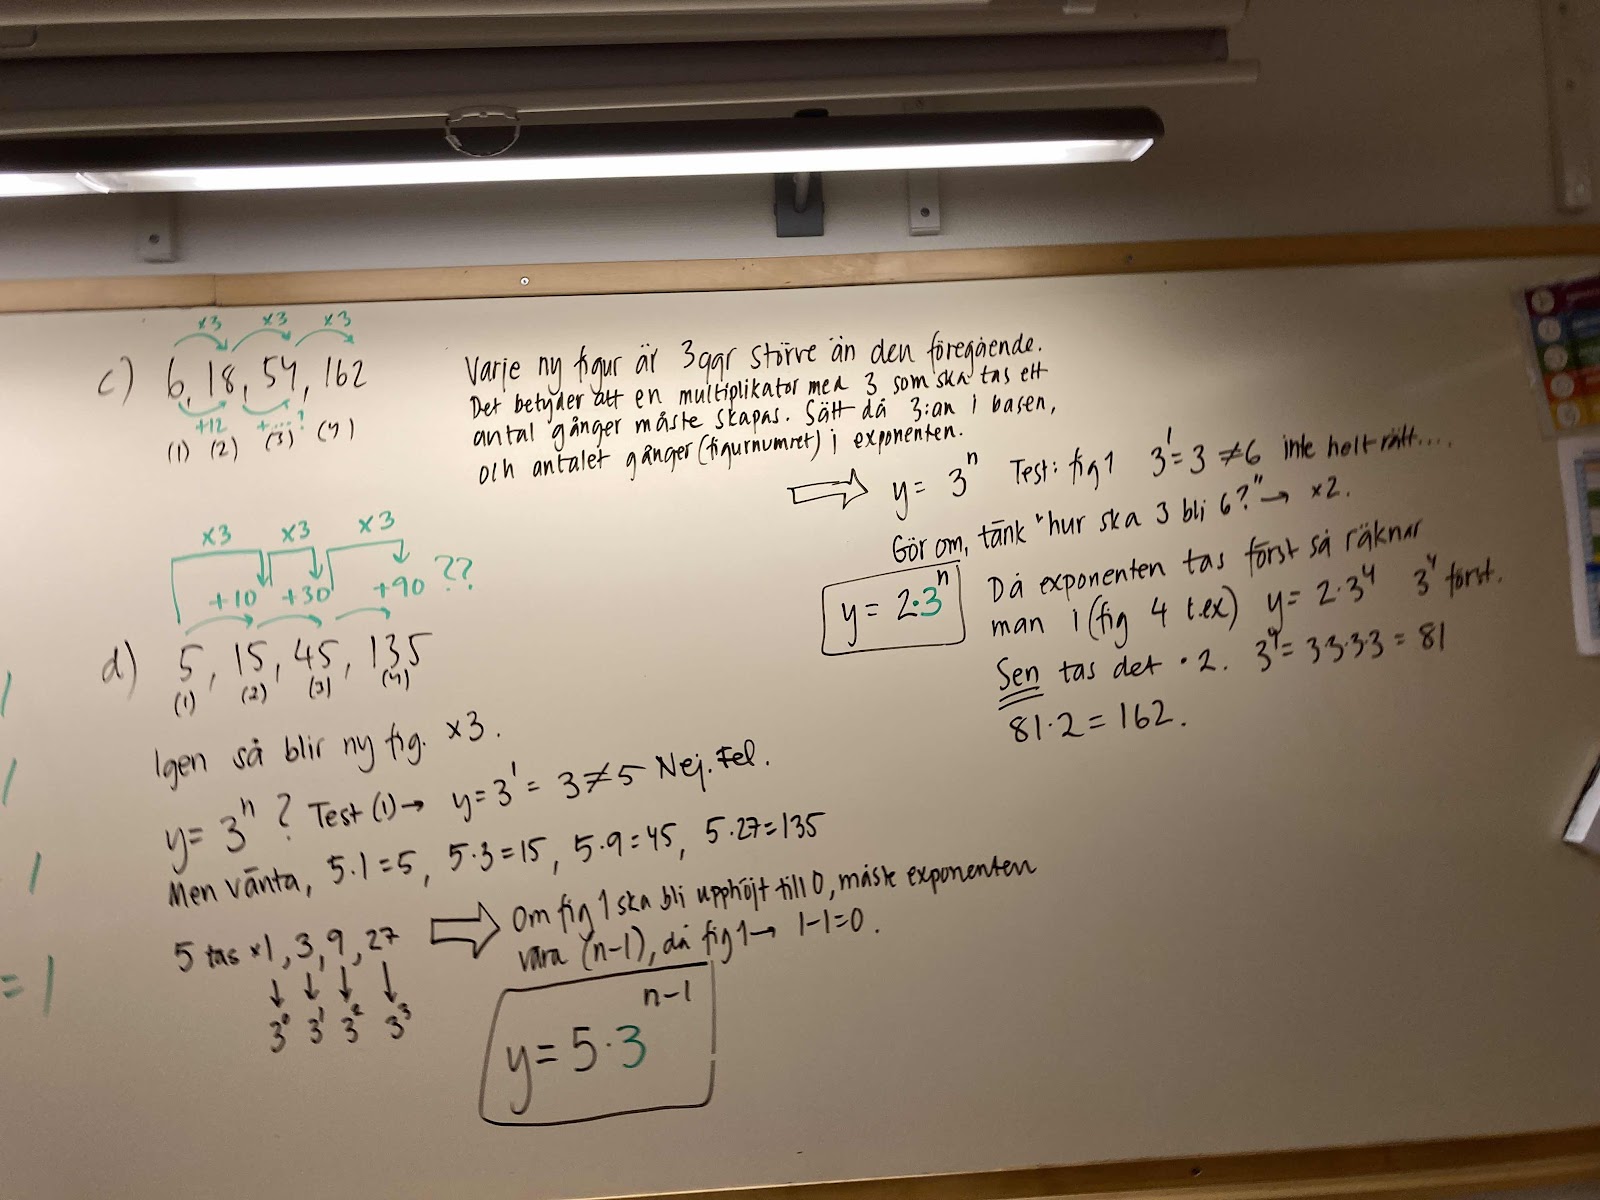 x3 x3 x3
c) 6, 18, 54, 162
+12 +....?
(1) (2) (3) (4)
Varje ny figur är 3ggr större än den föregående.
Det betyder att en multiplikator med 3 som ska tas ett
antal gånger måste skapas. Sätt då 3:an i basen,
och antalet gånger (figurnumret) i exponenten.
⇒ y = 3^n Test: fig 1 3^1 = 3 ≠ 6 inte helt rätt....
Gör om, tänk "hur ska 3 bli 6?" → x2.
y = 2·3^n
Då exponenten tas först så räknar
man i (fig 4 t.ex) y = 2·3^4 3^4 först.
Sen tas det ·2. 3^4 = 3·3·3·3 = 81
81·2 = 162.
x3 x3 x3
+10 +30 +90 ??
d) 5, 15, 45, 135
(1) (2) (3) (4)
Igen så blir ny fig. x3.
y = 3^n ? Test (1) → y = 3^1 = 3 ≠ 5 Nej. Fel.
Men vänta, 5·1=5, 5·3=15, 5·9=45, 5·27=135
5 tas x1, 3, 9, 27
↓ ↓ ↓ ↓
3^0 3^1 3^2 3^3
⇒ Om fig 1 ska bli upphöjt till 0, måste exponenten
vara (n-1), då fig 1 → 1-1=0.
y = 5·3^(n-1)
= 1